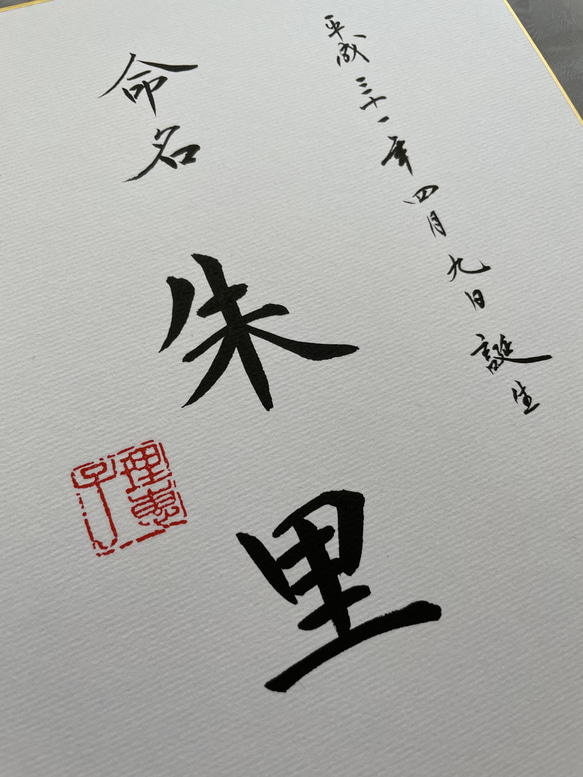 平成三十一年四月九日誕生
命名
朱里
理恵子